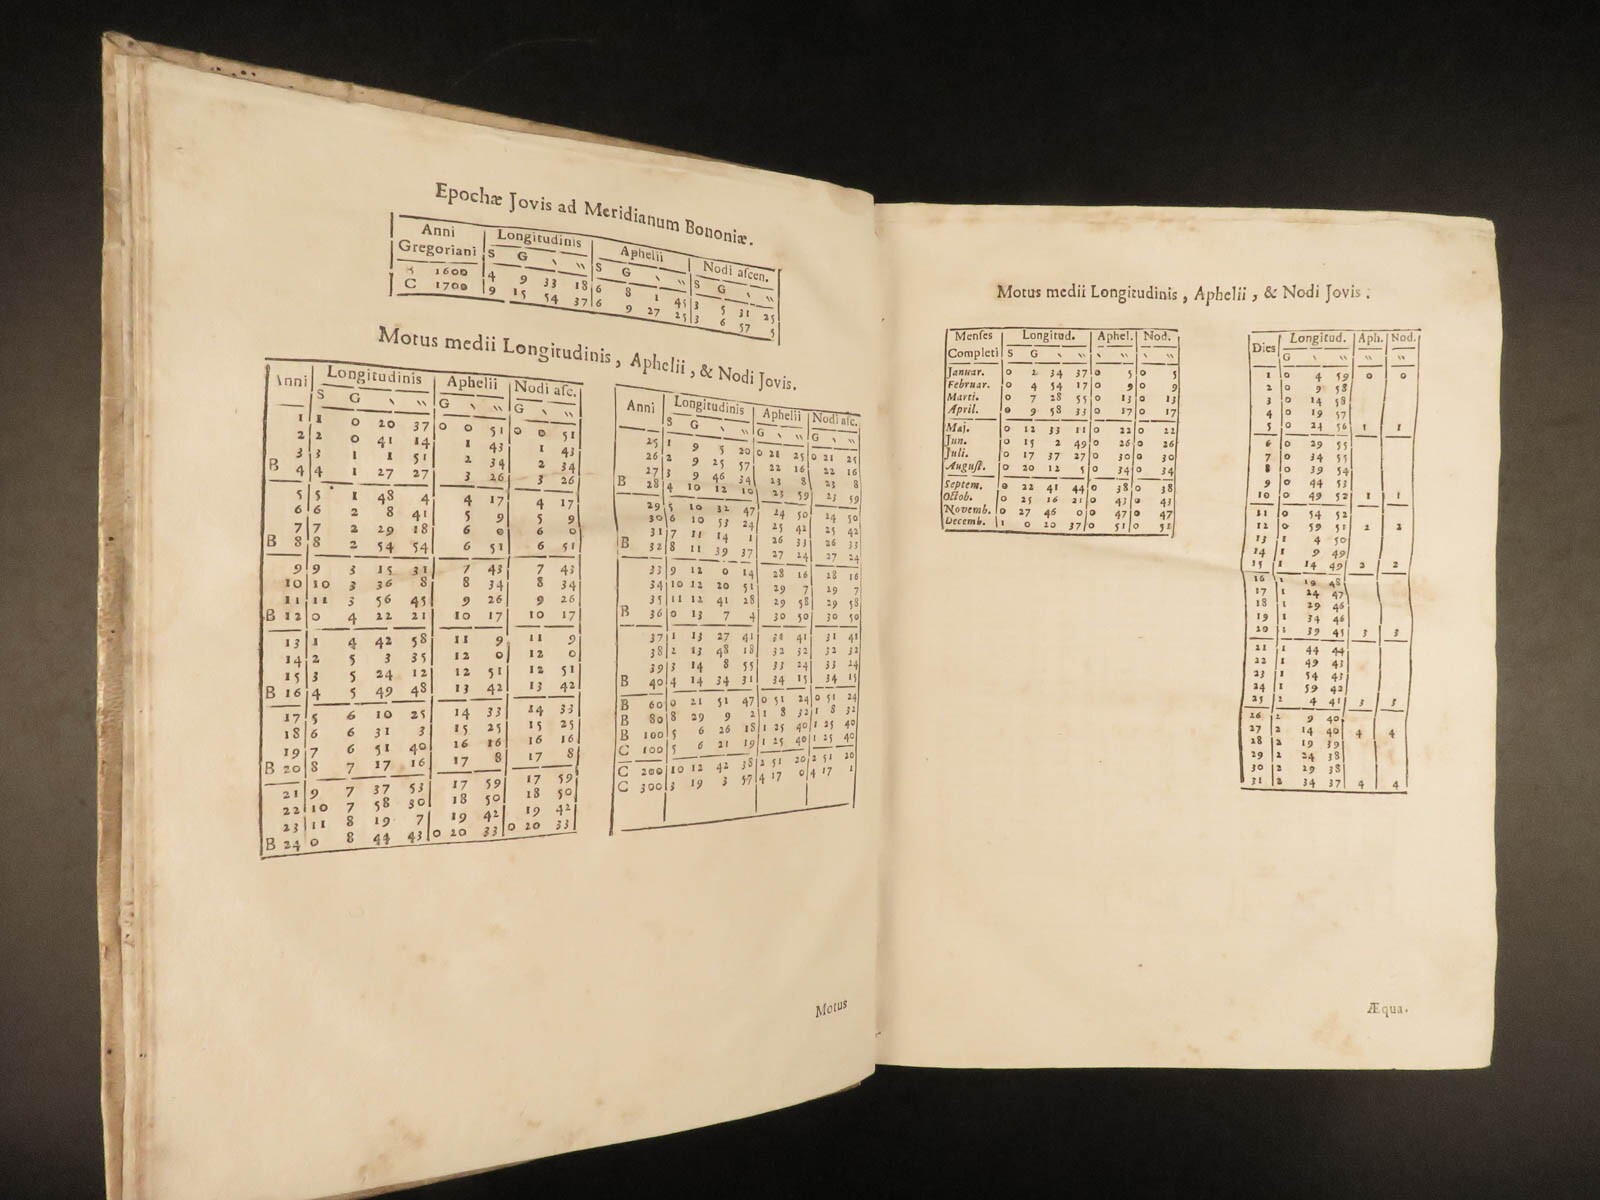 Epochæ Jovis ad Meridianum Bononiæ.
Anni Gregoriani | Longitudinis | Aphelii | Nodi aſcen.
S G ‵ ‶ | S G ‵ ‶ | S G ‵ ‶
B 1600 | 4 9 33 18 | 6 8 1 45 | 3 5 31 25
C 1700 | 9 15 54 37 | 6 9 27 25 | 3 6 57 5
Motus medii Longitudinis, Aphelii, & Nodi Jovis.
Anni | Longitudinis | Aphelii | Nodi aſc.
S G ‵ ‶ | G ‵ ‶ | G ‵ ‶
1 | 1 0 20 37 | 0 0 51 | 0 0 51
2 | 2 0 41 14 | 1 43 | 1 43
3 | 3 1 1 51 | 2 34 | 2 34
B 4 | 4 1 27 27 | 3 26 | 3 26
5 | 5 1 48 4 | 4 17 | 4 17
6 | 6 2 8 41 | 5 9 | 5 9
7 | 7 2 29 18 | 6 0 | 6 0
B 8 | 8 2 54 54 | 6 51 | 6 51
9 | 9 3 15 31 | 7 43 | 7 43
10 | 10 3 36 8 | 8 34 | 8 34
11 | 11 3 56 45 | 9 26 | 9 26
B 12 | 0 4 22 21 | 10 17 | 10 17
13 | 1 4 42 58 | 11 9 | 11 9
14 | 2 5 3 35 | 12 0 | 12 0
15 | 3 5 24 12 | 12 51 | 12 51
B 16 | 4 5 49 48 | 13 42 | 13 42
17 | 5 6 10 25 | 14 33 | 14 33
18 | 6 6 31 3 | 15 25 | 15 25
19 | 7 6 51 40 | 16 16 | 16 16
B 20 | 8 7 17 16 | 17 8 | 17 8
21 | 9 7 37 53 | 17 59 | 17 59
22 | 10 7 58 30 | 18 50 | 18 50
23 | 11 8 19 7 | 19 42 | 19 42
B 24 | 0 8 44 43 | 0 20 33 | 0 20 33
Anni | Longitudinis | Aphelii | Nodi aſc.
S G ‵ ‶ | G ‵ ‶ | G ‵ ‶
25 | 1 9 5 20 | 0 21 25 | 0 21 25
26 | 2 9 25 57 | 22 16 | 22 16
27 | 3 9 46 34 | 23 8 | 23 8
B 28 | 4 10 12 10 | 23 59 | 23 59
29 | 5 10 32 47 | 24 50 | 24 50
30 | 6 10 53 24 | 25 42 | 25 42
31 | 7 11 14 1 | 26 33 | 26 33
B 32 | 8 11 39 37 | 27 24 | 27 24
33 | 9 12 0 14 | 28 16 | 28 16
34 | 10 12 20 51 | 29 7 | 29 7
35 | 11 12 41 28 | 29 58 | 29 58
B 36 | 0 13 7 4 | 30 50 | 30 50
37 | 1 13 27 41 | 31 41 | 31 41
38 | 2 13 48 18 | 32 32 | 32 32
39 | 3 14 8 55 | 33 24 | 33 24
B 40 | 4 14 34 31 | 34 15 | 34 15
B 60 | 0 21 51 47 | 0 51 24 | 0 51 24
B 80 | 8 29 9 2 | 1 8 32 | 1 8 32
B 100 | 5 6 26 18 | 1 25 40 | 1 25 40
C 100 | 5 6 21 19 | 1 25 40 | 1 25 40
C 200 | 10 12 42 38 | 2 51 20 | 2 51 20
C 300 | 3 19 3 57 | 4 17 0 | 4 17 1
Motus
Motus medii Longitudinis, Aphelii, & Nodi Jovis.
Menſes Completi | Longitud. | Aphel. | Nod.
S G ‵ ‶ | ‵ ‶ | ‵ ‶
Januar. | 0 2 34 37 | 0 5 | 0 5
Februar. | 0 4 54 17 | 0 9 | 0 9
Marti. | 0 7 28 55 | 0 13 | 0 13
April. | 0 9 58 33 | 0 17 | 0 17
Maj. | 0 12 33 11 | 0 22 | 0 22
Jun. | 0 15 2 49 | 0 26 | 0 26
Juli. | 0 17 37 27 | 0 30 | 0 30
Auguſt. | 0 20 12 5 | 0 34 | 0 34
Septem. | 0 22 41 44 | 0 38 | 0 38
Octob. | 0 25 16 21 | 0 43 | 0 43
Novemb. | 0 27 46 0 | 0 47 | 0 47
Decemb. | 1 0 20 37 | 0 51 | 0 51
Dies | Longitud. | Aph. | Nod.
G ‵ ‶ | ‶ | ‶
1 | 0 4 59 | 0 | 0
2 | 0 9 58
3 | 0 14 58
4 | 0 19 57
5 | 0 24 56 | 1 | 1
6 | 0 29 55
7 | 0 34 55
8 | 0 39 54
9 | 0 44 53
10 | 0 49 52 | 1 | 1
11 | 0 54 52
12 | 0 59 51 | 2 | 2
13 | 1 4 50
14 | 1 9 49
15 | 1 14 49 | 2 | 2
16 | 1 19 48
17 | 1 24 47
18 | 1 29 46
19 | 1 34 46
20 | 1 39 45 | 3 | 3
21 | 1 44 44
22 | 1 49 43
23 | 1 54 43
24 | 1 59 42
25 | 2 4 41 | 3 | 3
26 | 2 9 40
27 | 2 14 40 | 4 | 4
28 | 2 19 39
29 | 2 24 38
30 | 2 29 38
31 | 2 34 37 | 4 | 4
Æqua.